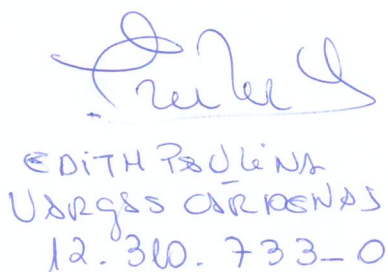 EDITH PAULINA
VARGAS CARDENAS
12.310.733-0